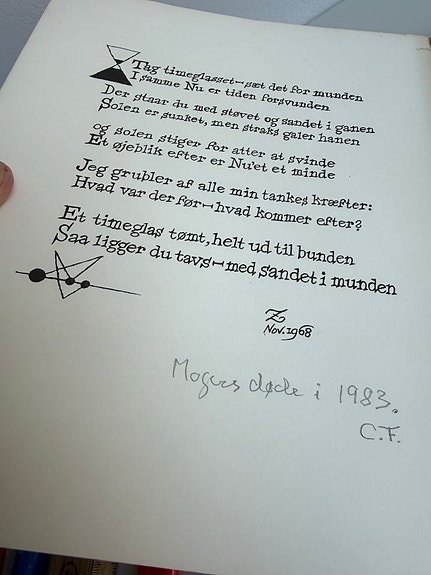 Tag timeglasset—sæt det for munden
I samme Nu er tiden forsvunden
Der staar du med støvet og sandet i ganen
Solen er sunket, men straks galer hanen
og solen stiger for atter at svinde
Et øjeblik efter er Nu'et et minde
Jeg grubler af alle min tankes kræfter:
Hvad var der før—hvad kommer efter?
Et timeglas tømt, helt ud til bunden
Saa ligger du tavs—med sandet i munden
Z
Nov. 1968
Mogens døde i 1983.
C.F.